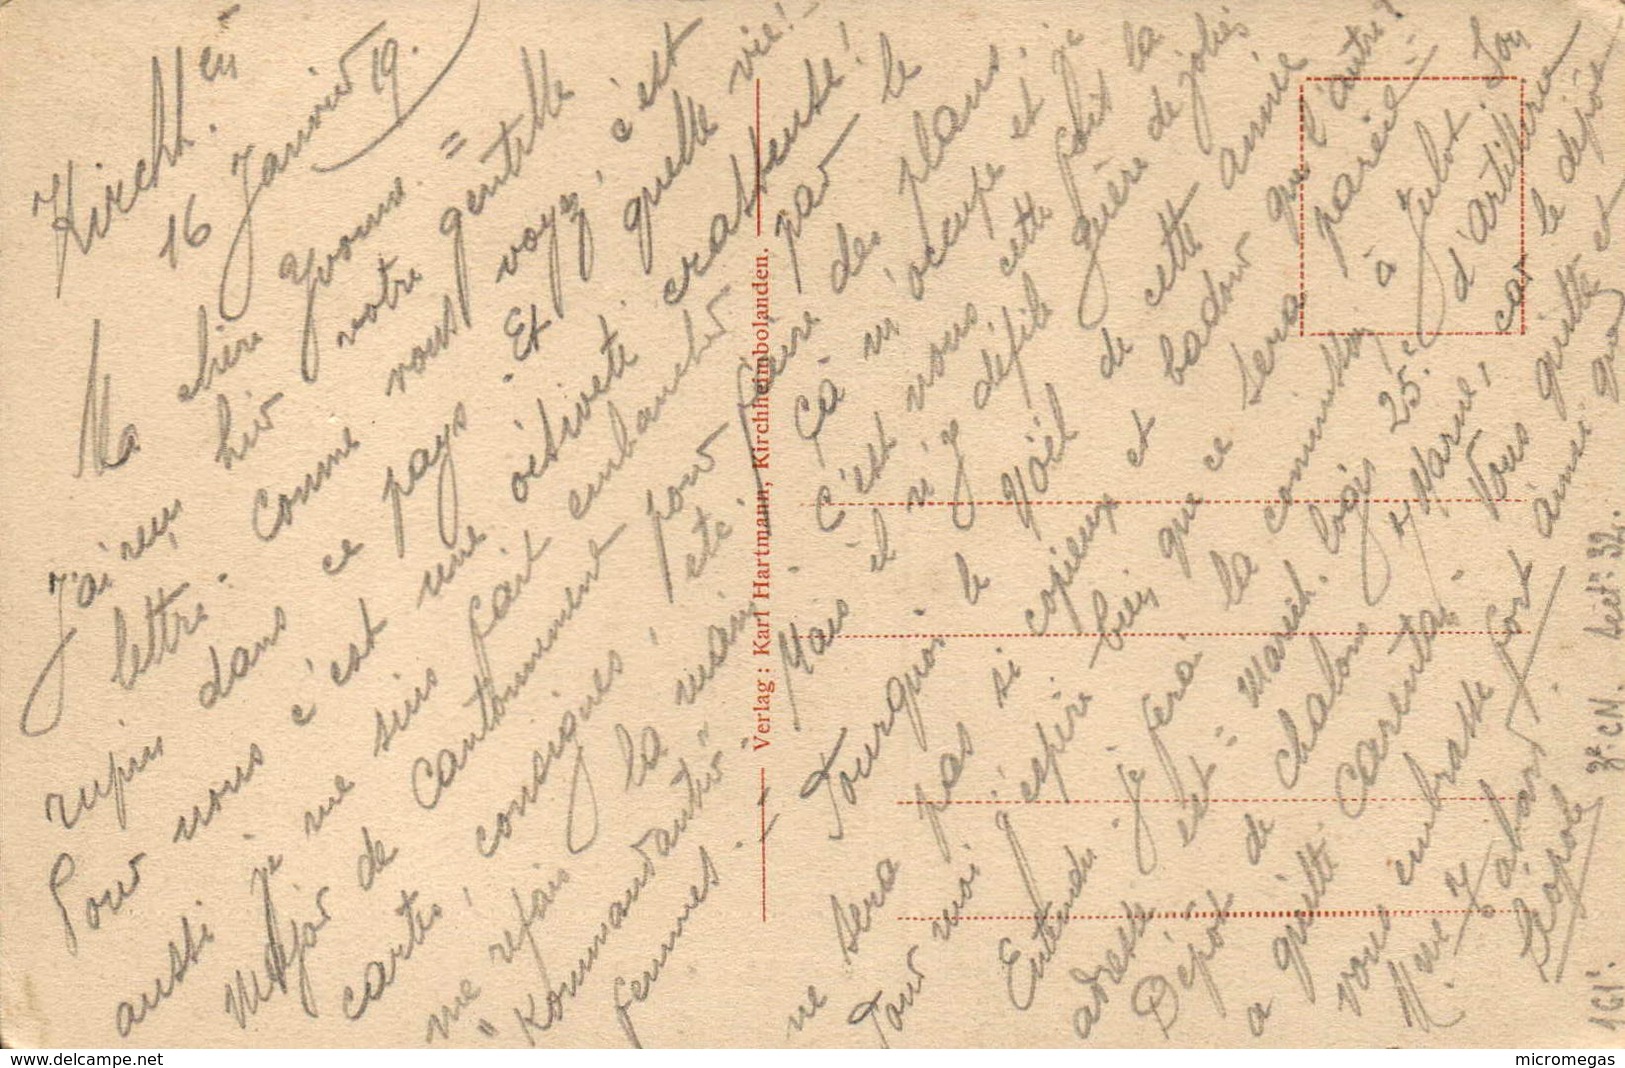 Kircht.en
16 Janvier 19.
Ma chère Yvonne =
J'ai reçu hier votre gentille
lettre. Comme vous voyez, c'est
rupin dans ce pays. Et quelle vie!
Pour nous c'est une oisiveté crasseuse!
aussi je me suis fait embaucher par le
Major de Cantonnement pour faire des plans,
cartes, consignes, etc. Ça m'occupe et je
me refais la main. C'est vous cette fois la
"Kommandantur" Mais il n'y défile guère de jolies
femmes. — Pourquoi le Noël de cette année
ne sera pas si copieux et badour que l'autre?
Pour moi j'espère bien que ce sera pareil =
Entendu je ferai la commission à Julot. Son
adresse est = Maréch. logis 25e d'Artillerie
Dépôt de Chalons s/ Marne, car le dépôt
a quitté Carentan. Vous quitte et
vous embrasse fort ainsi que
Mme Zabard.
Léopold
161e. 3e. CN. Sect. 32.
Verlag: Karl Hartmann, Kirchheimbolanden.
https://www.delcampe.net
micromegas